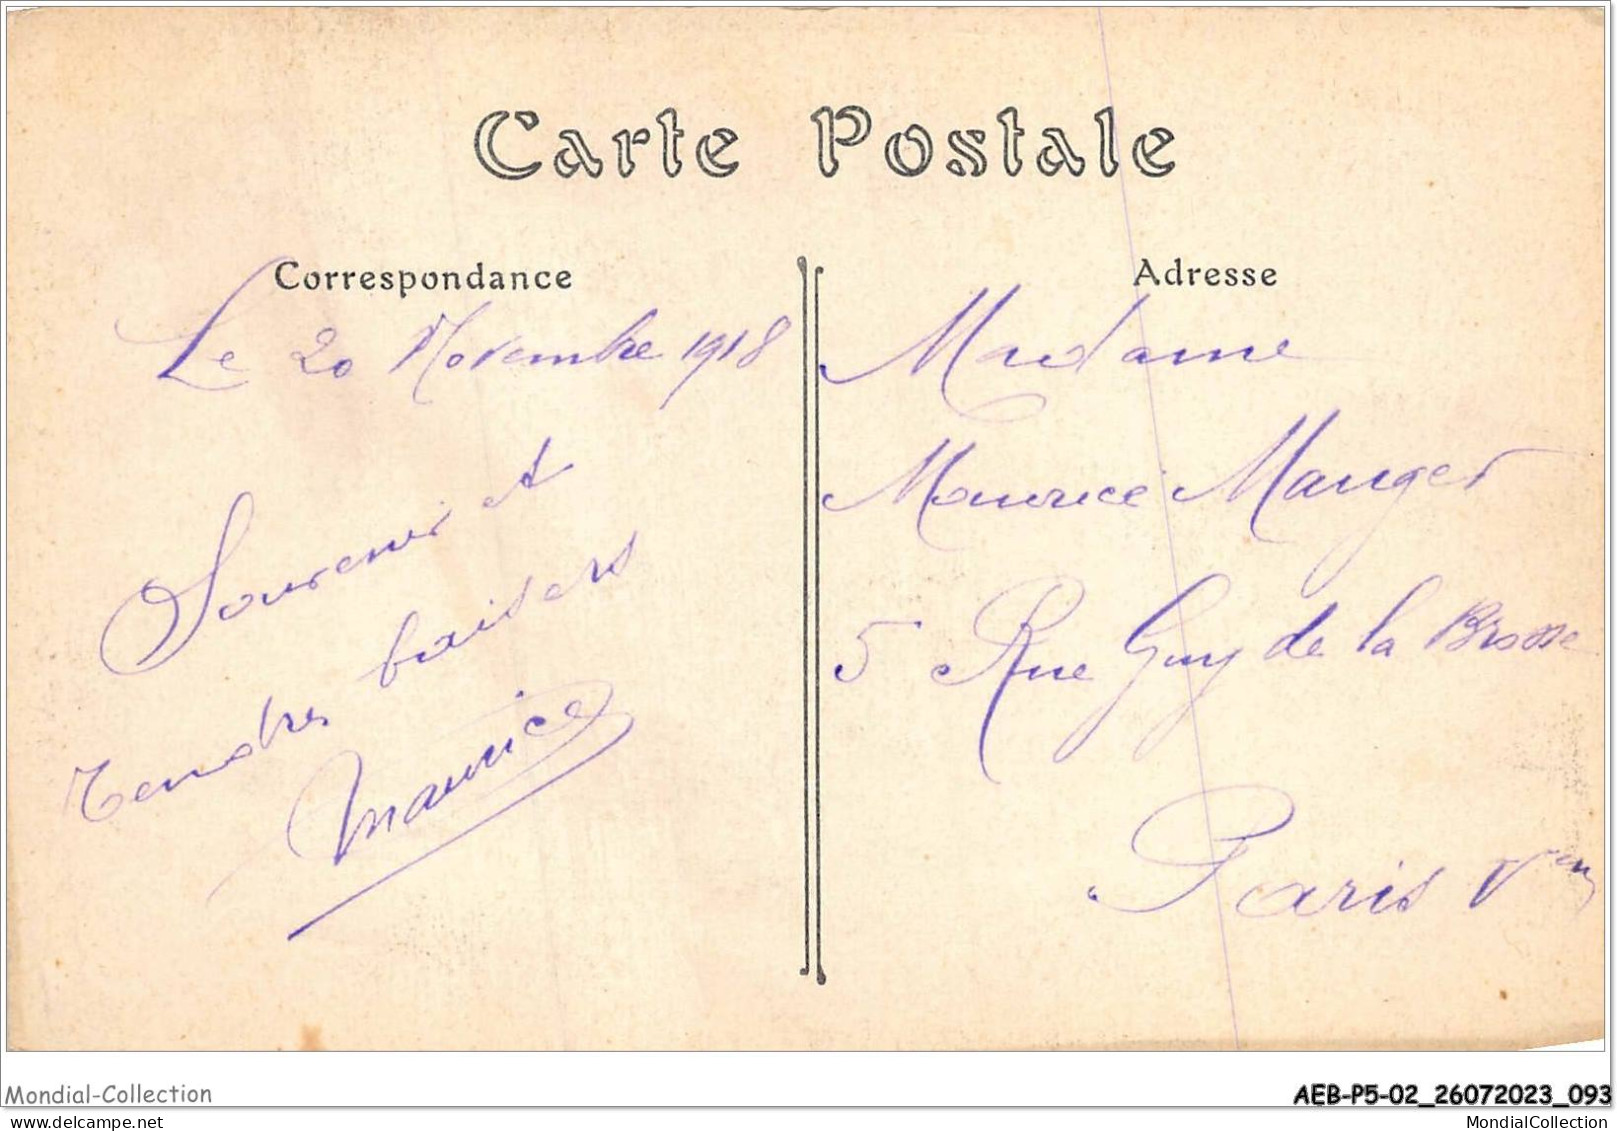 Carte Postale
Correspondance
Le 20 Novembre 1918
Souvenir et
Tendres baisers
Maurice
Adresse
Madame
Maurice Mauger
5 Rue Guy de la Brosse
Paris Vem
Mondial-Collection
AEB-P5-02_26072023_093
MondialCollection